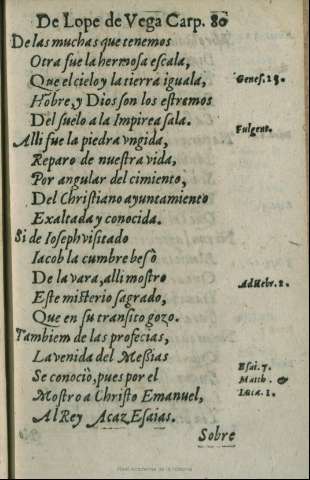 De Lope de Vega Carp. 80
De las muchas que tenemos
Otra fue la hermosa escala,
Que el cielo y la tierra iguala,
Genes. 28.
Hõbre, y Dios son los estremos
Del suelo a la Impirea sala.
Fulgent.
Alli fue la piedra vngida,
Reparo de nuestra vida,
Por angular del cimiento,
Del Christiano ayuntamiento
Exaltada y conocida.
Si de Ioseph visitado
Iacob la cumbre besò
De la vara, alli mostro
Ad Hebr. 2.
Este misterio sagrado,
Que en su transito gozo.
Tambiem de las profecias,
La venida del Messias
Esai. 7.
Se conociò, pues por el
Matth. &
Mostro a Christo Emanuel,
Luca. 1.
Al Rey Acaz Esaias.
Sobre
Real Academia de la Historia